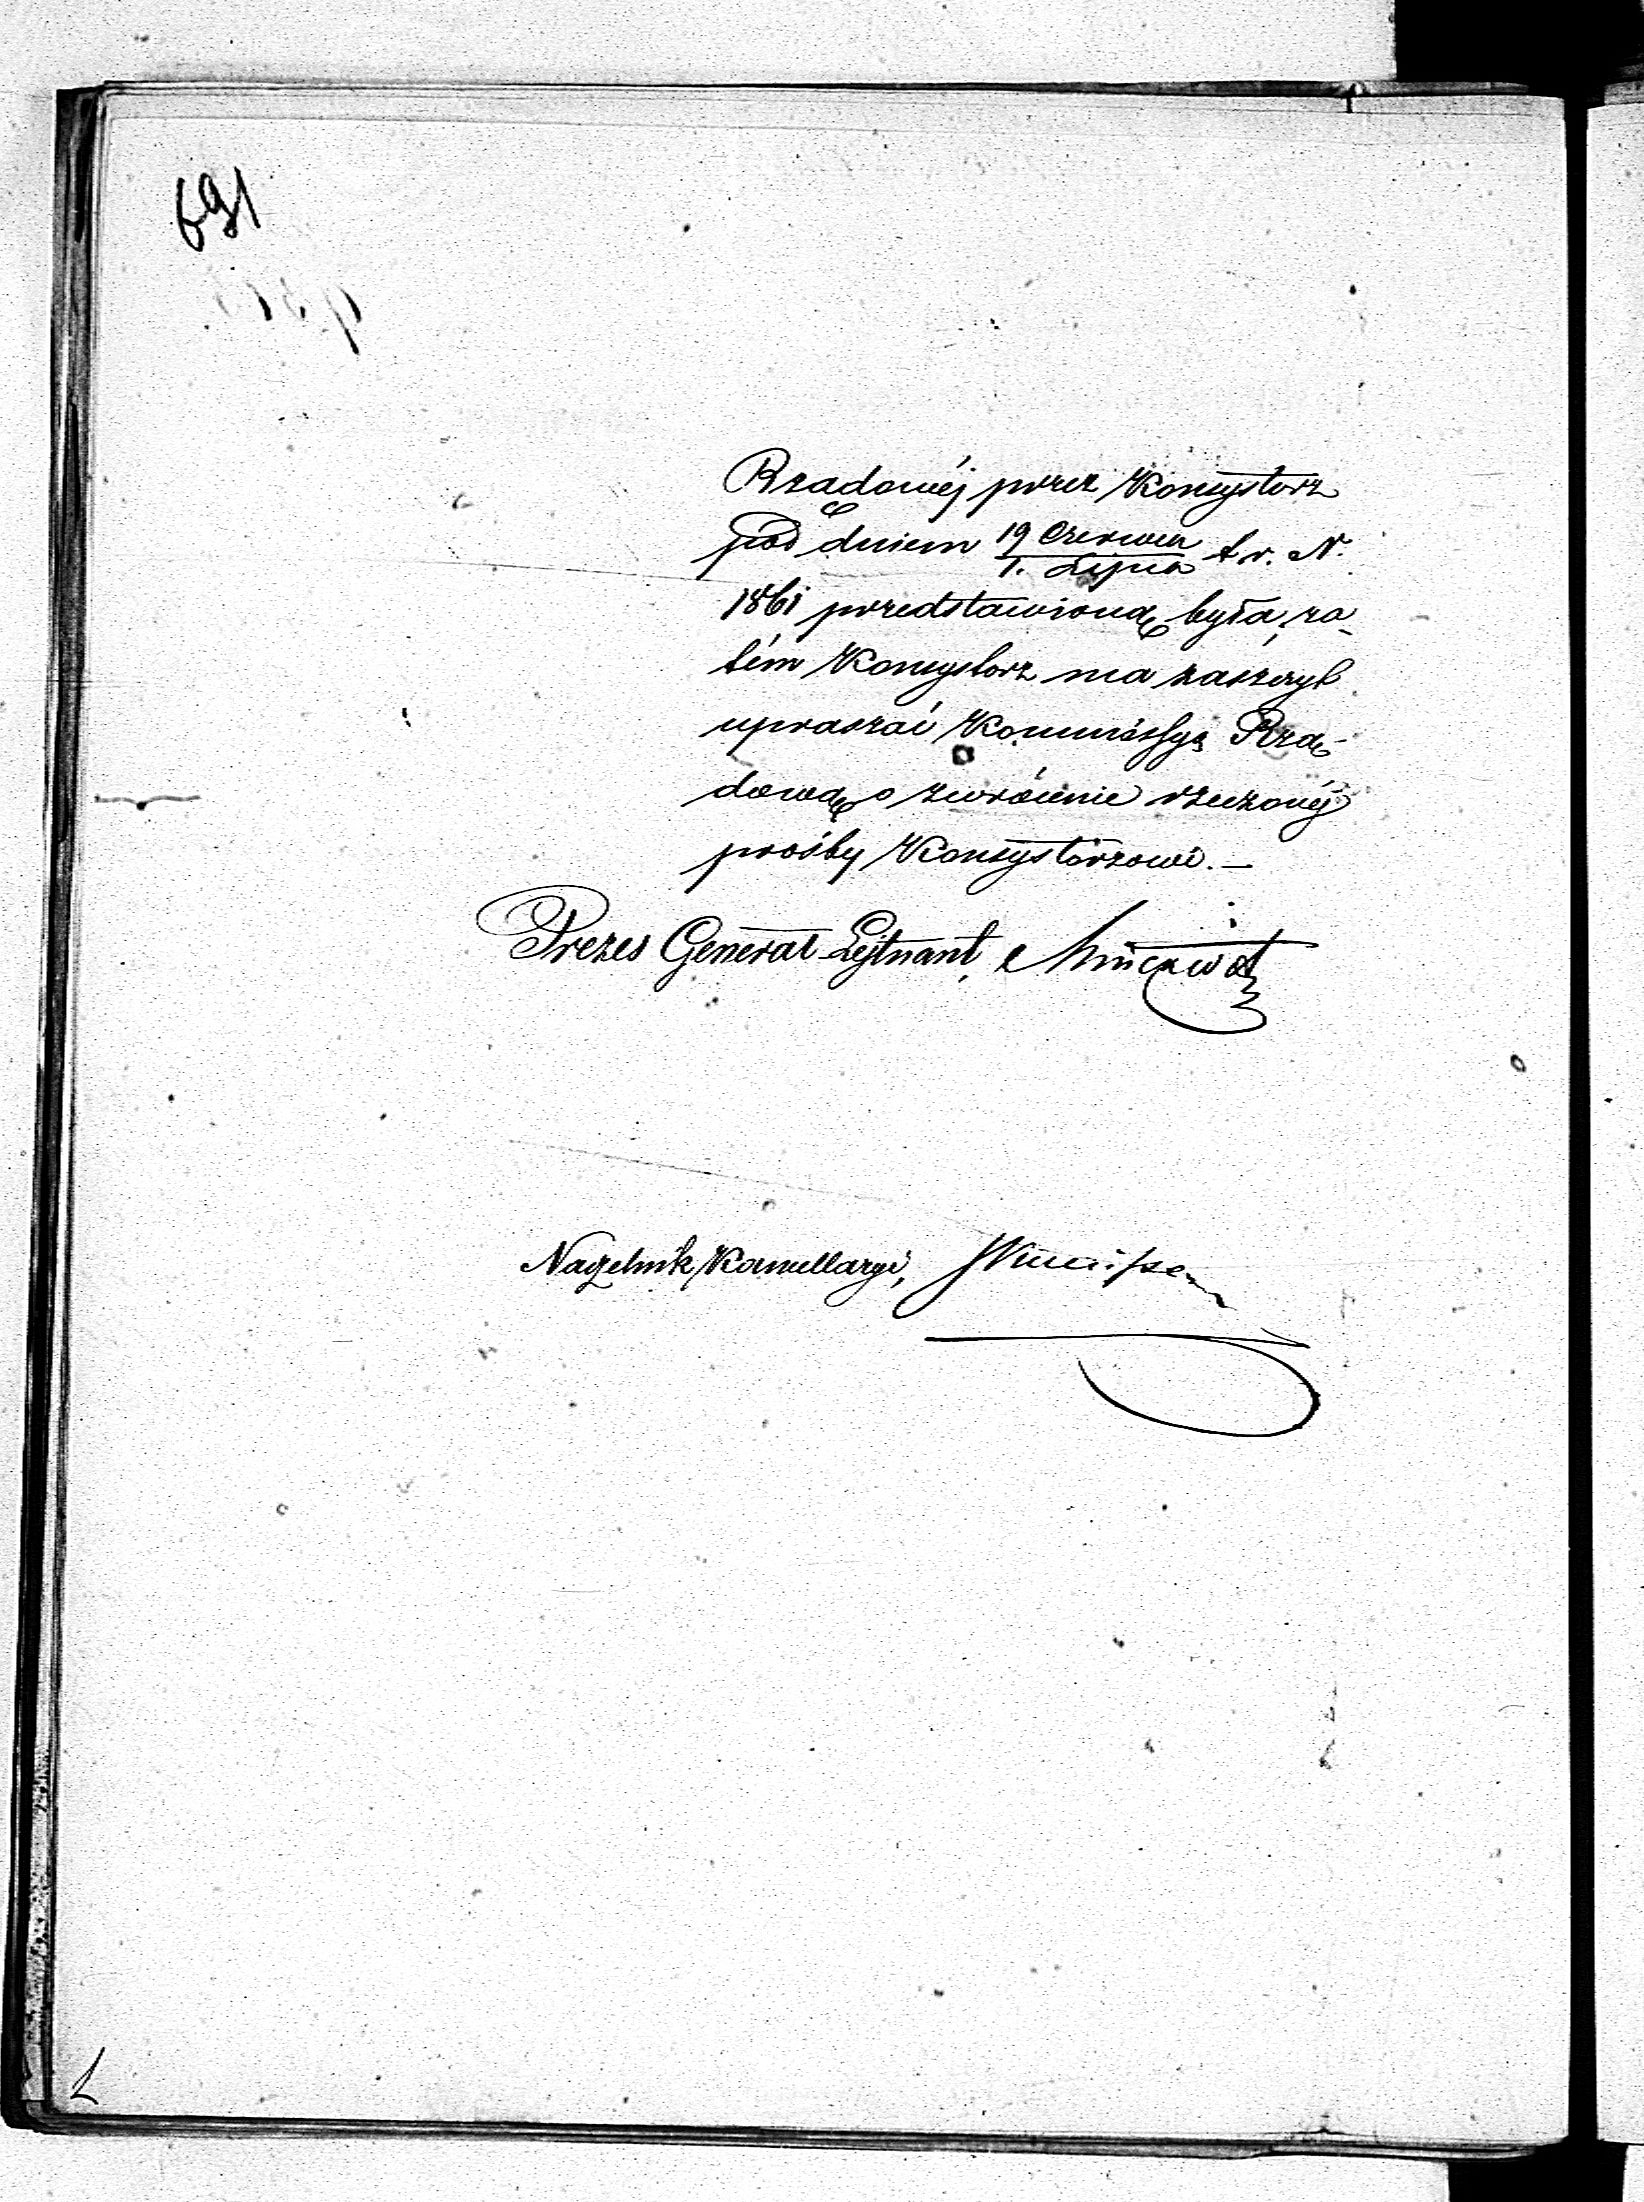 691
Rządowéj przez Konsystorz
pod dniem 19 Czerwca / 1. Lipca t. r. N.
1861 przedstawioną była, za-
tém Konsystorz ma zaszczyt
upraszać Kommissyę Rzą-
dową o zwrócenie rzeczonéj
prośby Konsystorzowi. —
Prezes Generał-Lejtnant,
Naczelnik Kancellaryi,